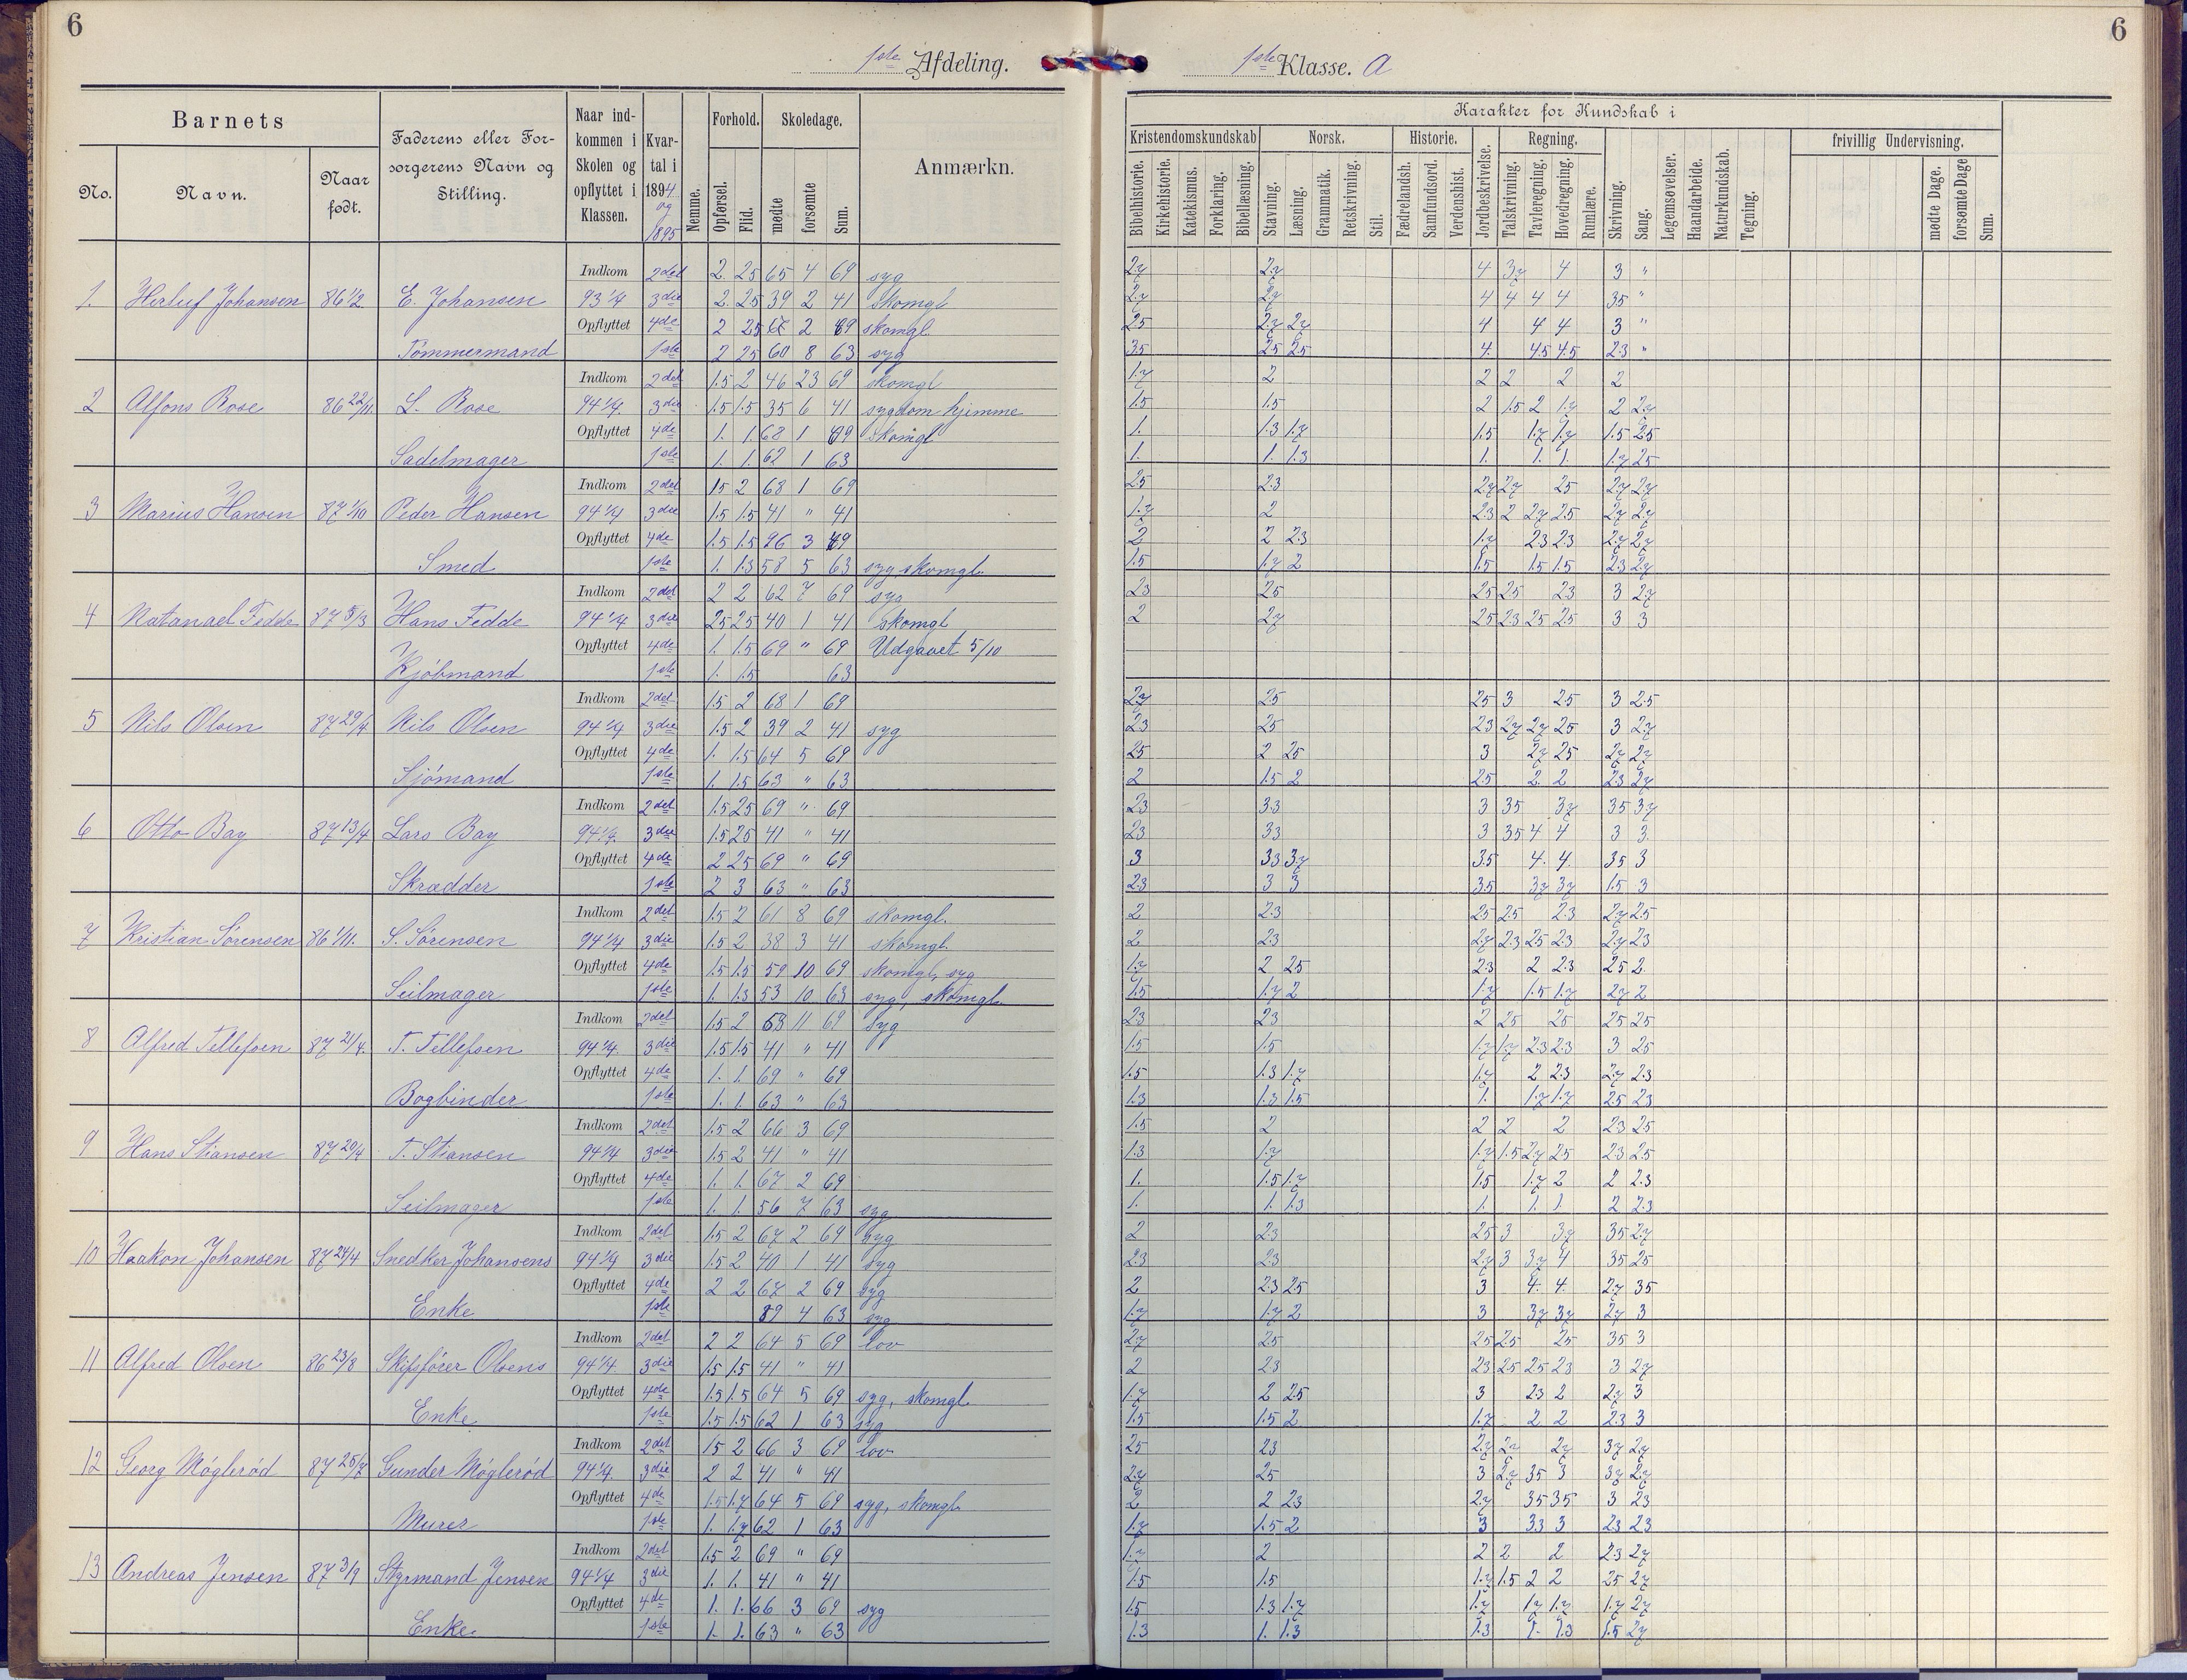 6
1ste Afdeling.
1ste Klasse. A
6
Barnets
No.
Navn.
Naar født.
Faderens eller Forsorgerens Navn og Stilling.
Naar indkommen i Skolen og opflyttet i Klassen.
Kvartal i 1894 og 1895
Nemme.
Forhold.
Opførsel.
Flid.
Skoledage.
mødte
forsømte
Sum.
Anmærkn.
Karakter for Kundskab i
Kristendomskundskab
Bibelhistorie.
Kirkehistorie.
Katekismus.
Forklaring.
Bibellæsning.
Norsk.
Stavning.
Læsning.
Grammatik.
Retskrivning.
Stil.
Historie.
Fædrelandsh.
Samfundsord.
Verdenshist.
Jordbeskrivelse.
Regning.
Talskrivning.
Tavleregning.
Hovedregning.
Rumlære.
Skrivning.
Sang.
Legemsøvelser.
Haandarbeide.
Naturkundskab.
Tegning.
frivillig Undervisning.
mødte Dage.
forsømte Dage
Sum.
Indkom 2det 2. 25 65 4 69 syg 4 4 3 "
1. Herluf Johansen 86 1/2 E. Johansen 93 1/4 3die 2. 25 39 2 41 skomgl 4 4 4 4 35 "
Opflyttet 4de 2 25 2 69 skomgl. 25 4 4 4 3 "
Tømmermand 1ste 2 25 60 8 63 syg 35 25 25 4. 45 45 23 "
Indkom 2det 1.5 2 46 23 69 skomgl 1.7 2 2 2 2 2
2 Alfons Rose 86 22/11. L. Rose 94 1/4. 3die 1.5 1.5 35 6 41 sygdom hjemme 1.5 1.5 2 1.5 2 1.7 2 2.7
Opflyttet 4de 1. 1. 68 1 69 skomgl 1. 1.3 1.7 1.5 1.7 1.7 1.5 25
Sadelmager 1ste 1. 1. 62 1 63 1. 1. 1.3 1. 1. 1. 1.7 25
Indkom 2det 15 2 68 1 69 25 23 27 27 25 27 27
3 Marius Hansen 87 1/10 Peder Hansen 94 1/4 3die 1.5 1.5 41 " 41 1.7 2 23 2 27 25 27 27
Opflyttet 4de 1.5 1.5 3 69 2 2 23 1.7 23 23 27 27
Smed 1ste 1. 1.3 58 5 63 syg, skomgl. 1.5 1.7 2 1.5 1.5 1.5 23 27
Indkom 2det 2 2 62 7 69 syg 23 25 25 25 23 3 27
4 Natanael Fedde 87 5/3 Hans Fedde 94 1/4 3die 25 25 40 1 41 skomgl 2 27 25 23 25 25 3 3
Opflyttet 4de 1. 1.5 69 " 69 Udgaaet 5/10
Kjøbmand 1ste 1. 1.5 63
Indkom 2det 1.5 2 68 1 69 27 25 25 3 25 3 25
5 Nils Olsen 87 29/4 Nils Olsen 94 1/4 3die 1.5 2 39 2 41 syg 23 25 23 27 27 25 3 27
Opflyttet 4de 1. 1.5 64 5 69 25 2 25 3 27 25 27 27
Sjømand 1ste 1. 1.5 63 " 63 2 1.5 2 25 2 2 23 27
Indkom 2det 1.5 25 69 " 69 23 33 3 35 37 35 37
6 Otto Bay 87 13/4 Lars Bay 94 1/4. 3die 1.5 25 41 " 41 23 33 3 35 4 4 3 3
Opflyttet 4de 2 25 69 " 69 3 33 37 35 4. 4. 35 3
Skrædder 1ste 2 3 63 " 63 23 3 3 35 37 37 1.5 3
Indkom 2det 1.5 2 61 8 69 skomgl. 2 23 25 25 23 27 25
7 Kristian Sørensen 86 1/11. S. Sørensen 94 1/4 3die 1.5 2 38 3 41 skomgl. 2 23 27 23 25 23 27 23
Opflyttet 4de 1.5 1.5 59 10 69 skomgl, syg 1.7 2 25 23 2 23 25 2
Seilmager 1ste 1. 1.3 53 10 63 syg, skomgl. 1.5 1.7 2 1.7 1.5 1.7 27 2
Indkom 2det 1.5 2 58 11 69 syg 23 23 2 25 25 25 25
8 Alfred Tellefsen 87 21/4. T. Tellefsen 94 1/4. 3die 1.5 1.5 41 " 41 1.5 1.5 1.7 1.7 23 23 3 25
Opflyttet 4de 1. 1. 69 " 69 1.5 1.3 1.7 1.7 2 23 27 23
Bogbinder 1ste 1. 1. 63 " 63 1.3 1.3 1.5 1. 1.7 1.7 25 23
Indkom 2det 1.5 2 66 3 69 1.5 2 2 2 2 23 25
9 Hans Stiansen 87 20/4 T. Stiansen 94 1/4 3die 1.5 2 41 " 41 1.3 1.7 1.7 1.5 27 25 23 25
Opflyttet 4de 1. 1. 67 2 69 1. 1.5 1.7 1.5 1.7 2 2 23
Seilmager 1ste 1. 1. 56 7 63 syg 1. 1. 1.3 1. 1. 1. 2 23
Indkom 2det 1.5 2 67 2 69 syg 2 23 25 3 37 35 27
10 Haakon Johansen 87 24/4 Snedker Johansens 94 1/4 3die 1.5 2 40 1 41 syg 23 23 27 3 37 4 35 25
Opflyttet 4de 2 2 67 2 69 syg 2 23 25 3 4. 4. 27 35
Enke 1ste 4 63 syg 1.7 1.7 2 3 37 37 27 3
Indkom 2det 2 2 64 5 69 lov 27 25 25 25 25 35 3
11 Alfred Olsen 86 23/8 Skipsfører Olsens 94 1/4. 3die 1.5 1.5 41 " 41 2 23 23 25 25 23 3 27
Opflyttet 4de 1.5 1.5 64 5 69 syg, skomgl. 1.7 2 25 3 23 2 27 3
Enke 1ste 1.5 1.5 62 1 63 syg 1.5 1.5 2 1.7 2 2 23 3
Indkom 2det 15 2 66 3 69 lov 25 23 27 27 27 37 27
12 Georg Møglerød 87 25/7 Gunder Møglerød 94 1/4. 3die 2 2 41 " 41 27 25 3 27 35 3 37 27
Opflyttet 4de 1.5 1.7 64 5 69 syg, skomgl. 2 2 23 27 35 35 3 23
Murer 1ste 1. 1.7 62 1 63 1.7 1.5 2 3 33 3 23 23
Indkom 2det 1.5 2 69 " 69 1.7 2 2 2 2 23 27
13 Andreas Jensen 87 3/9 Styrmand Jensen 94 1/4 3die 1. 1. 41 " 41 1.5 1.5 1.7 1.5 2 2 25 27
Opflyttet 4de 1. 1. 66 3 69 syg 1.5 1.3 1.7 1.7 1.7 1.7 1.7 27
Enke. 1ste 1. 1. 63 " 63 1.3 1. 1.3 1.3 1. 1.3 1.5 27